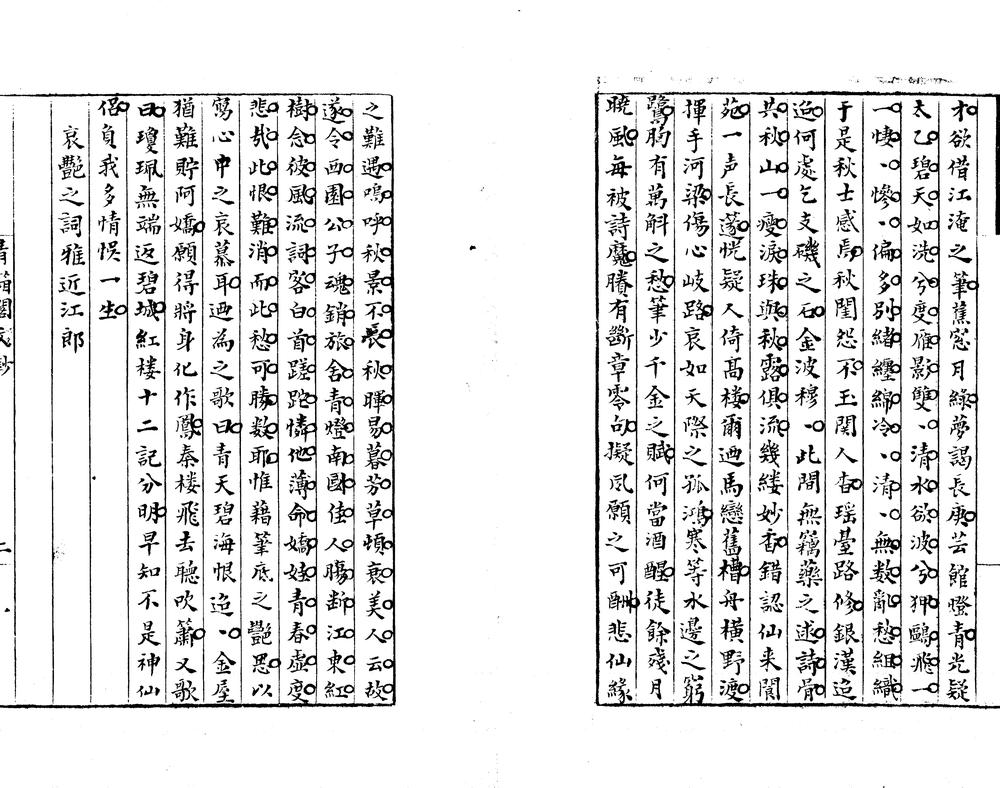 才欲借江淹之筆蕉窓月綠夢謁長庚芸館燈青光疑
太乙碧天如洗兮度雁影雙、清水欲波兮狎鷗飛一
一悽、慘、偏多別緒纏綿冷、清、無数亂愁組織
于是秋士感焉秋閨怨不玉関人杳瑶臺路修銀漢迢
迢何處乞支磯之石金波穆、此間無竊藥之逑詩骨
共秋山一瘦淚珠與秋露俱流幾縷妙香錯認仙来閬
苑一声長邃恍疑人倚髙楼爾迺馬戀舊槽舟横野渡
揮手河梁傷心岐路哀如天際之孤鴻寒等水邊之窮
鷺胸有萬斛之愁筆少千金之賦何當酒醒徒餘殘月
曉風每被詩魔賸有斷章零句擬夙願之可酬悲仙緣
之難遇嗚呼秋景不長秋暉易暮芳草頓衰美人云故
遂令西園公子魂銷旅舍青燈南國佳人膓断江東紅
樹念彼風流詞客白首蹉跎憐他薄命嬌娃青春虛度
悲哉此恨難消而此愁可勝数耶惟藉筆底之艷思以
寫心中之哀慕耳迺為之歌曰青天碧海恨迢、金屋
猶難貯阿嬌願得將身化作鳳秦楼飛去聽吹簫又歌
曰瓊珮無端返碧城紅楼十二記分明早知不是神仙
侶負我多情悮一生
哀艷之詞雅近江郎